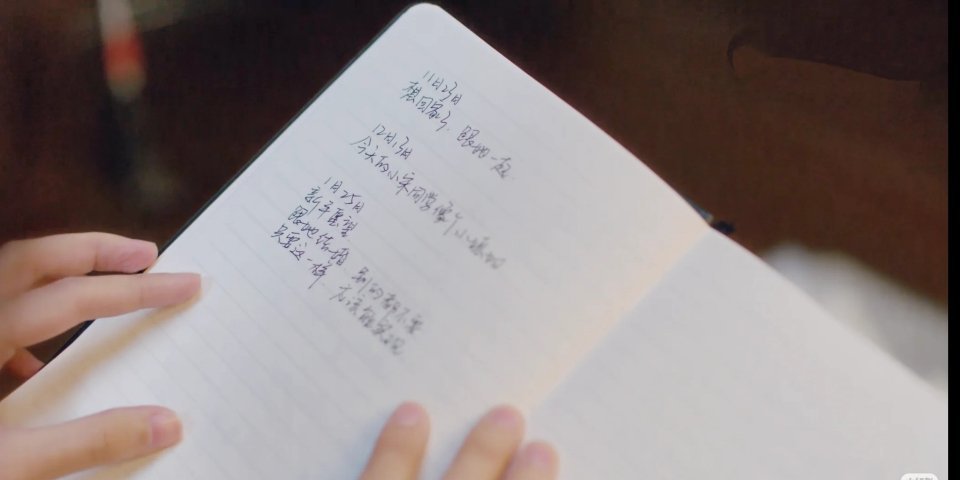 11月23日
想回家了,跟她一起
12月13日
今天的小宋同学像个小朋友
1月25日
新年愿望
跟她结婚
只要这一样,别的都不要